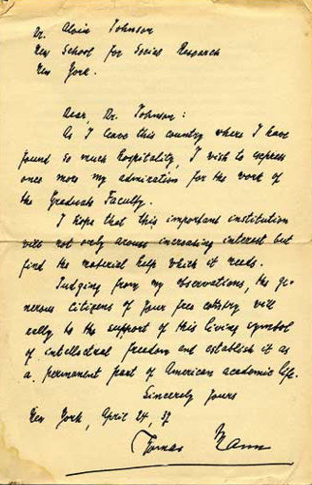 Dr. Alvin Johnson
New School for Social Research
New York.
Dear, Dr. Johnson:
As I leave this country where I have
found so much hospitality, I wish to express
once more my admiration for the work of
the Graduate Faculty.
I hope that this important institution
will not only arouse increasing interest but
find the material help which it needs.
Judging from my observations, the ge-
nerous citizens of your free country will
rally to the support of this living symbol
of intellectual freedom and establish it as
a permanent part of American academic life.
Sincerely yours
New York, April 24, 37
Thomas Mann